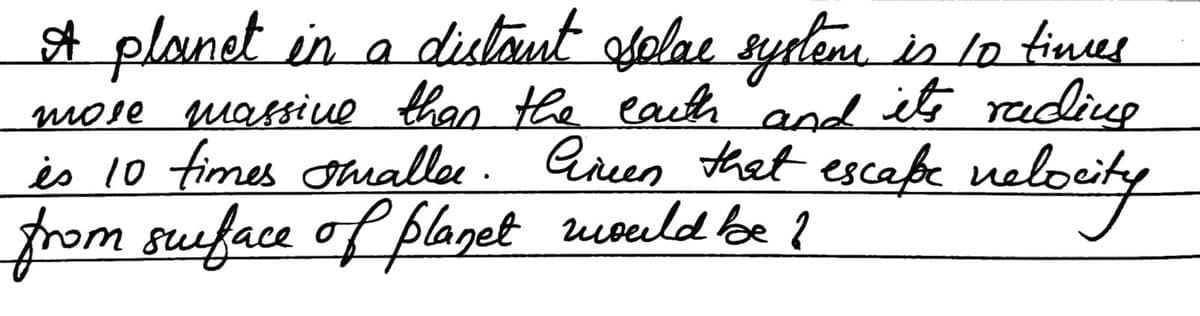 A planet in a distant solar system is 10 times
more massive than the earth and its radius
is 10 times smaller. Given that escape velocity
from surface of planet would be ?